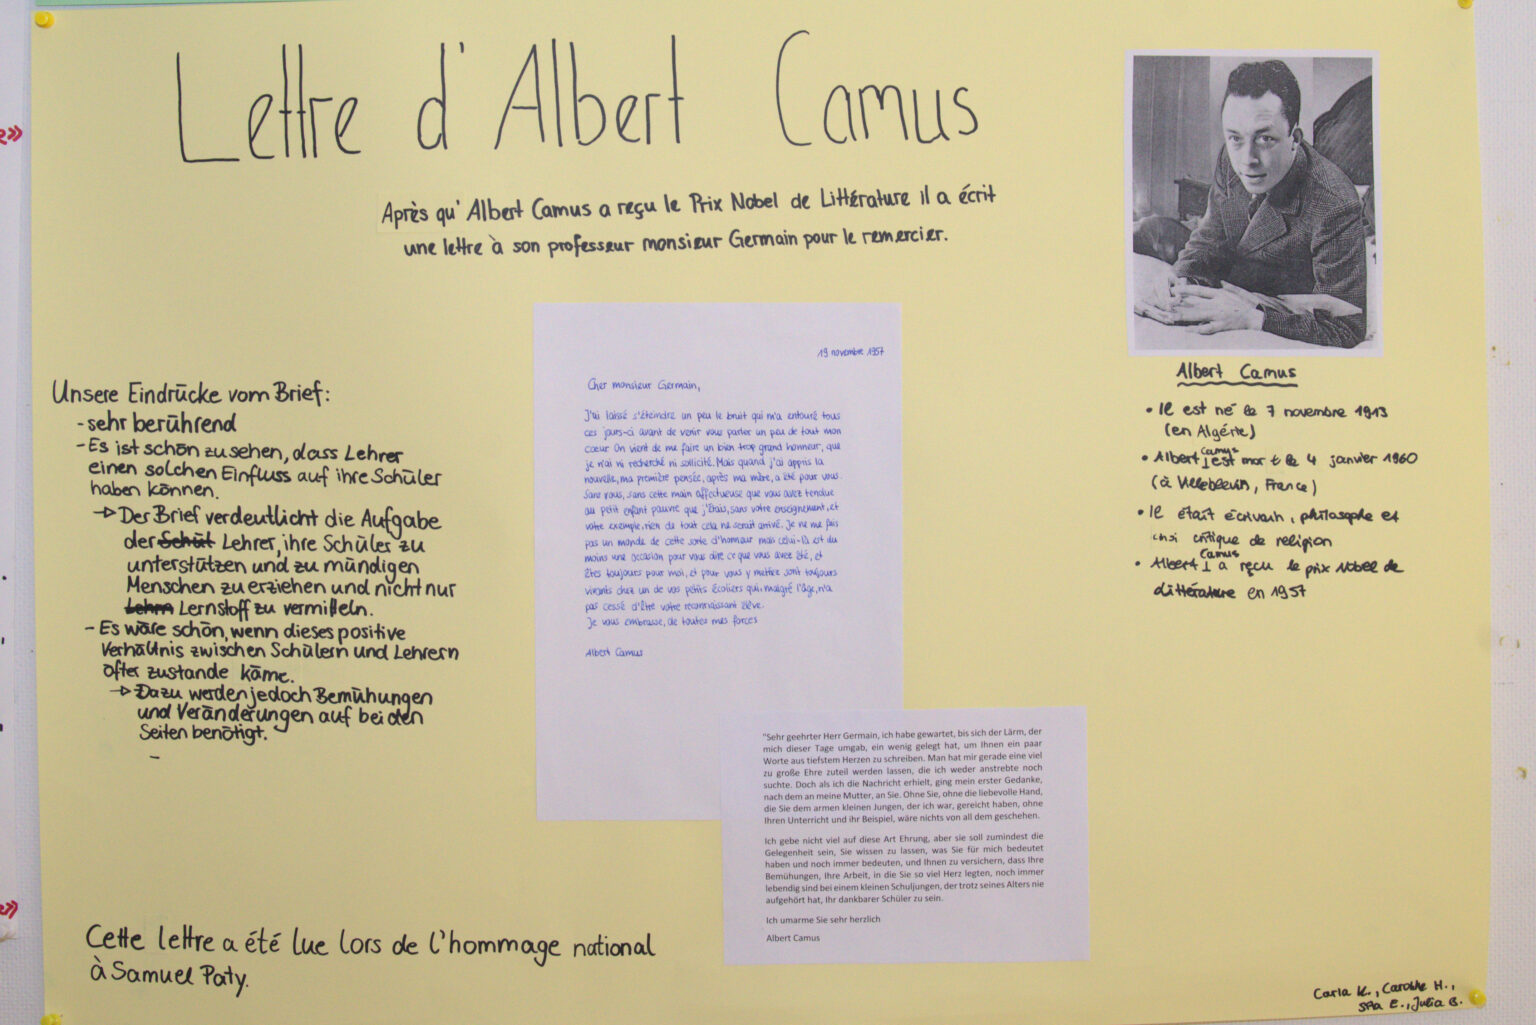 Lettre d'Albert Camus
Après qu'Albert Camus a reçu le Prix Nobel de Littérature il a écrit
une lettre à son professeur monsieur Germain pour le remercier.
Unsere Eindrücke vom Brief:
- sehr berührend
- Es ist schön zu sehen, dass Lehrer
einen solchen Einfluss auf ihre Schüler
haben können.
→ Der Brief verdeutlicht die Aufgabe
der Schul Lehrer, ihre Schüler zu
unterstützen und zu mündigen
Menschen zu erziehen und nicht nur
Lehrn Lernstoff zu vermitteln.
- Es wäre schön, wenn dieses positive
Verhältnis zwischen Schülern und Lehrern
öfter zustande käme.
→ Dazu werden jedoch Bemühungen
und Veränderungen auf beiden
Seiten benötigt.
-
19 novembre 1957
Cher monsieur Germain,
J'ai laissé s'éteindre un peu le bruit qui m'a entouré tous
ces jours-ci avant de venir vous parler un peu de tout mon
cœur On vient de me faire un bien trop grand honneur, que
je n'ai ni recherché ni sollicité. Mais quand j'ai appris la
nouvelle, ma première pensée, après ma mère, a été pour vous.
Sans vous, sans cette main affectueuse que vous avez tendue
au petit enfant pauvre que j'étais, sans votre enseignement, et
votre exemple, rien de tout cela ne serait arrivé. Je ne me fais
pas un monde de cette sorte d'honneur mais celui-là est du
moins une occasion pour vous dire ce que vous avez été, et
êtes toujours pour moi, et pour vous y mettiez sont toujours
vivants chez un de vos petits écoliers qui, malgré l'âge, n'a
pas cessé d'être votre reconnaissant élève.
Je vous embrasse, de toutes mes forces
Albert Camus
"Sehr geehrter Herr Germain, ich habe gewartet, bis sich der Lärm, der
mich dieser Tage umgab, ein wenig gelegt hat, um Ihnen ein paar
Worte aus tiefstem Herzen zu schreiben. Man hat mir gerade eine viel
zu große Ehre zuteil werden lassen, die ich weder anstrebte noch
suchte. Doch als ich die Nachricht erhielt, ging mein erster Gedanke,
nach dem an meine Mutter, an Sie. Ohne Sie, ohne die liebevolle Hand,
die Sie dem armen kleinen Jungen, der ich war, gereicht haben, ohne
Ihren Unterricht und ihr Beispiel, wäre nichts von all dem geschehen.
Ich gebe nicht viel auf diese Art Ehrung, aber sie soll zumindest die
Gelegenheit sein, Sie wissen zu lassen, was Sie für mich bedeutet
haben und noch immer bedeuten, und Ihnen zu versichern, dass Ihre
Bemühungen, Ihre Arbeit, in die Sie so viel Herz legten, noch immer
lebendig sind bei einem kleinen Schuljungen, der trotz seines Alters nie
aufgehört hat, Ihr dankbarer Schüler zu sein.
Ich umarme Sie sehr herzlich
Albert Camus
Albert Camus
• Il est né le 7 novembre 1913
(en Algérie)
• Albert Camus est mort le 4 janvier 1960
(à Villeblevin, France)
• Il était écrivain, philosophe et
critique de religion
• Albert Camus a reçu le prix Nobel de
Littérature en 1957
Cette lettre a été lue lors de l'hommage national
à Samuel Paty.
Carla K., Caroline H.,
E., Julia B.